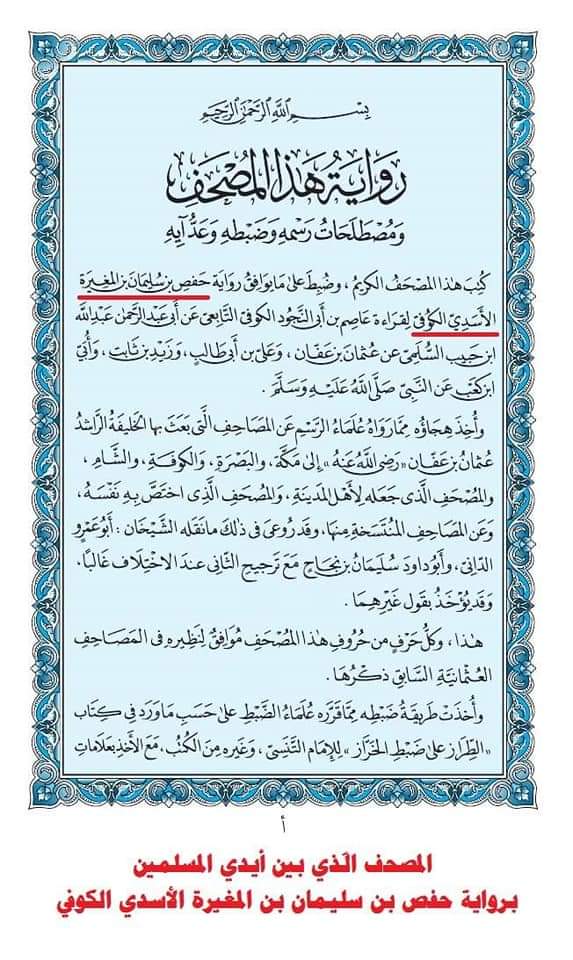 بِسْمِ اللَّهِ الرَّحْمَٰنِ الرَّحِيمِ
رِوَايَةُ هَٰذَا المُصْحَفِ
وَمُصْطَلَحَاتُ رَسْمِهِ وَضَبْطِهِ وَعَدِّ آيِهِ
كُتِبَ هَٰذَا المُصْحَفُ الكَرِيمُ ، وَضُبِطَ عَلَىٰ مَا يُوَافِقُ رِوَايَةَ حَفْصِ بْنِ سُلَيْمَانَ بْنِ المُغِيرَةِ
الأَسَدِيِّ الكُوفِيِّ لِقِرَاءَةِ عَاصِمِ بْنِ أَبِي النَّجُودِ الكُوفِيِّ التَّابِعِيِّ عَنْ أَبِي عَبْدِ الرَّحْمَٰنِ عَبْدِ اللَّهِ
ابْنِ حَبِيبٍ السُّلَمِيِّ عَنْ عُثْمَانَ بْنِ عَفَّانَ ، وَعَلِيِّ بْنِ أَبِي طَالِبٍ ، وَزَيْدِ بْنِ ثَابِتٍ ، وَأُبَيِّ
ابْنِ كَعْبٍ عَنِ النَّبِيِّ صَلَّى اللَّهُ عَلَيْهِ وَسَلَّمَ .
وَأُخِذَ هِجَاؤُهُ مِمَّا رَوَاهُ عُلَمَاءُ الرَّسْمِ عَنِ المَصَاحِفِ الَّتِي بَعَثَ بِهَا الخَلِيفَةُ الرَّاشِدُ
عُثْمَانُ بْنُ عَفَّانَ «رَضِيَ اللَّهُ عَنْهُ» إِلَىٰ مَكَّةَ ، وَالبَصْرَةِ ، وَالكُوفَةِ ، وَالشَّامِ ،
وَالمُصْحَفِ الَّذِي جَعَلَهُ لِأَهْلِ المَدِينَةِ ، وَالمُصْحَفِ الَّذِي اخْتَصَّ بِهِ نَفْسَهُ ،
وَعَنِ المَصَاحِفِ المُنْتَسَخَةِ مِنْهَا ، وَقَدْ رُوعِيَ فِي ذَٰلِكَ مَا نَقَلَهُ الشَّيْخَانِ : أَبُو عَمْرٍو
الدَّانِيُّ ، وَأَبُو دَاوُدَ سُلَيْمَانُ بْنُ نَجَاحٍ مَعَ تَرْجِيحِ الثَّانِي عِنْدَ الاخْتِلَافِ غَالِبًا ،
وَقَدْ يُؤْخَذُ بِقَوْلِ غَيْرِهِمَا .
هَٰذَا ، وَكُلُّ حَرْفٍ مِنْ حُرُوفِ هَٰذَا المُصْحَفِ مُوَافِقٌ لِنَظِيرِهِ فِي المَصَاحِفِ
العُثْمَانِيَّةِ السَّابِقِ ذِكْرُهَا .
وَأُخِذَتْ طَرِيقَةُ ضَبْطِهِ مِمَّا قَرَّرَهُ عُلَمَاءُ الضَّبْطِ عَلَىٰ حَسَبِ مَا وَرَدَ فِي كِتَابِ
«الطِّرَازِ عَلَىٰ ضَبْطِ الخَرَّازِ» لِلإِمَامِ التَّنَسِيِّ ، وَغَيْرِهِ مِنَ الكُتُبِ ، مَعَ الأَخْذِ بِعَلَامَاتِ
أ
المصحف الّذي بين أيدي المسلمين
برواية حفص بن سليمان بن المغيرة الأسدي الكوفي